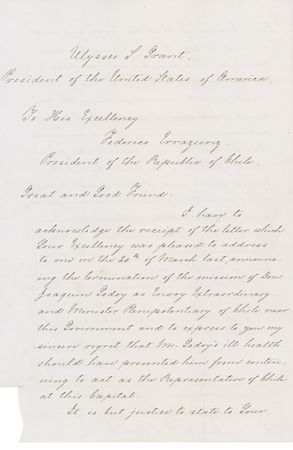 Ulysses S. Grant,
President of the United States of America.
To His Excellency
Federico Errazuriz
President of the Republic of Chile.
Great and Good Friend:
I have to
acknowledge the receipt of the letter which
Your Excellency was pleased to address
to me on the 20th of March last, announc
ing the termination of the mission of Don
Joaquin Godoy as Envoy Extraordinary
and Minister Plenipotentiary of Chile near
this Government and to express to you my
sincere regret that Mr. Godoy's ill health
should have prevented him from contin
uing to act as the Representative of Chile
at this Capital.
It is but justice to state to Your